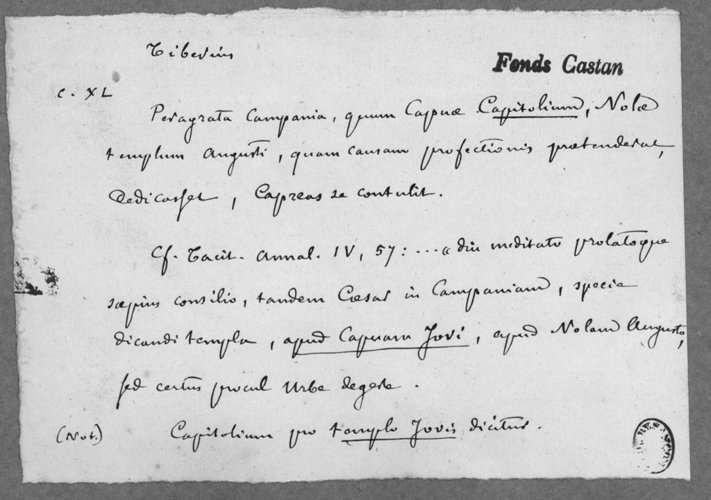 Tiberius
Fonds Castan
C. XL
Peragrata Campania, quum Capuæ Capitolium, Nolæ
templum Augusti, quam causam profectionis prætenderat,
Dedicasset, Capreas se contulit.
Cf. Tacit. Annal. IV, 57: ... a diu meditato prolatoque
sæpius consilio, tandem Cæsar in Campaniam, specie
dicandi templa, apud Capuam Jovi, apud Nolam Augusto,
sed certus procul Urbe degere.
(Not.) Capitolium pro templo Jovis dicitur.